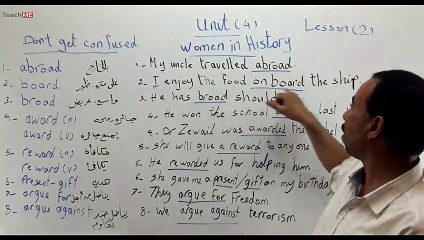 TeachME
Unit (4)
Lesson (2)
Don't get confused
women in History
1- abroad للخارج
2- board على متن
3- broad واسع - عريض
4- award (n)
award (v)
5- reward (n) مكافأة
reward (v) يكافئ
6- Present-gift هدية
7- argue for
8- argue against
1- My uncle travelled abroad.
2- I enjoy the food on board the ship
3- He has broad
4- He won the school last
4- Dr Zewail was awarded the
5- she will give a reward to anyone
5- He rewarded us for helping him
6- she gave me a present/gift on my birthday
7- They argue for Freedom
8- we argue against terrorism